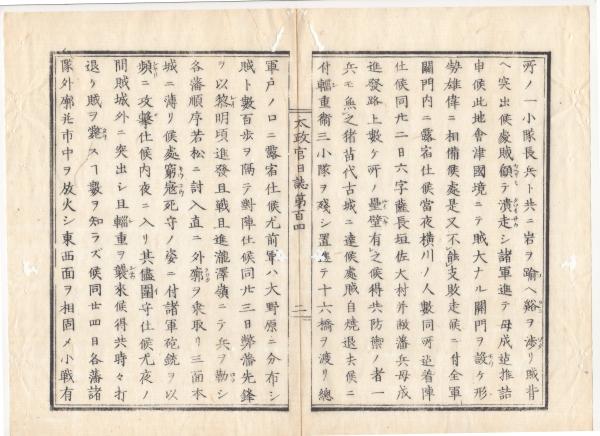 所ノ一小隊長兵ト共ニ岩ヲ踰ヘ谿ヲ渉リ賊背
ヘ突出候處賊顧テ潰走シ諸軍進テ母成迠推詰
申候此地會津國境ニテ賊大ナル關門ヲ設ケ形
勢雄偉ニ相備候處是又不能支敗走候ニ付全軍
關門内ニ露宿仕候當夜横川ノ人數同所迠着陣
仕候同廿二日六字薩長垣佐大村并敝藩兵母成
進發路上數ケ所ノ壘壁有之候得共防禦ノ者一
兵モ無之猪苗代古城ニ達候處賊自焼退去候ニ
付輜重衞三小隊ヲ殘シ置進テ十六橋ヲ渡リ總
太政官日誌第百四
二
軍戸ノ口ニ露宿仕候尤前軍ハ大野原ニ分布シ
賊ト數百歩ヲ隔テ對陣仕候同廿三日弊藩先鋒
ヲ以黎明頃進發且戰且進瀧澤嶺ニテ兵ヲ勒シ
各藩順序若松ニ討入直ニ外郭ヲ乘取リ三面本
城ニ薄リ候處窮寇死守ノ姿ニ付諸軍砲銃ヲ以
頻ニ攻撃仕候内夜ニ入リ其儘圍守仕候尤夜ノ
間賊城外ニ突出シ且輜重ヲ襲來候得共時々打
退リ賊ヲ斃スヿ數ヲ知ラズ候同廿四日各藩諸
隊外郭并市中ヲ放火シ東西面ヲ相固メ小戰有